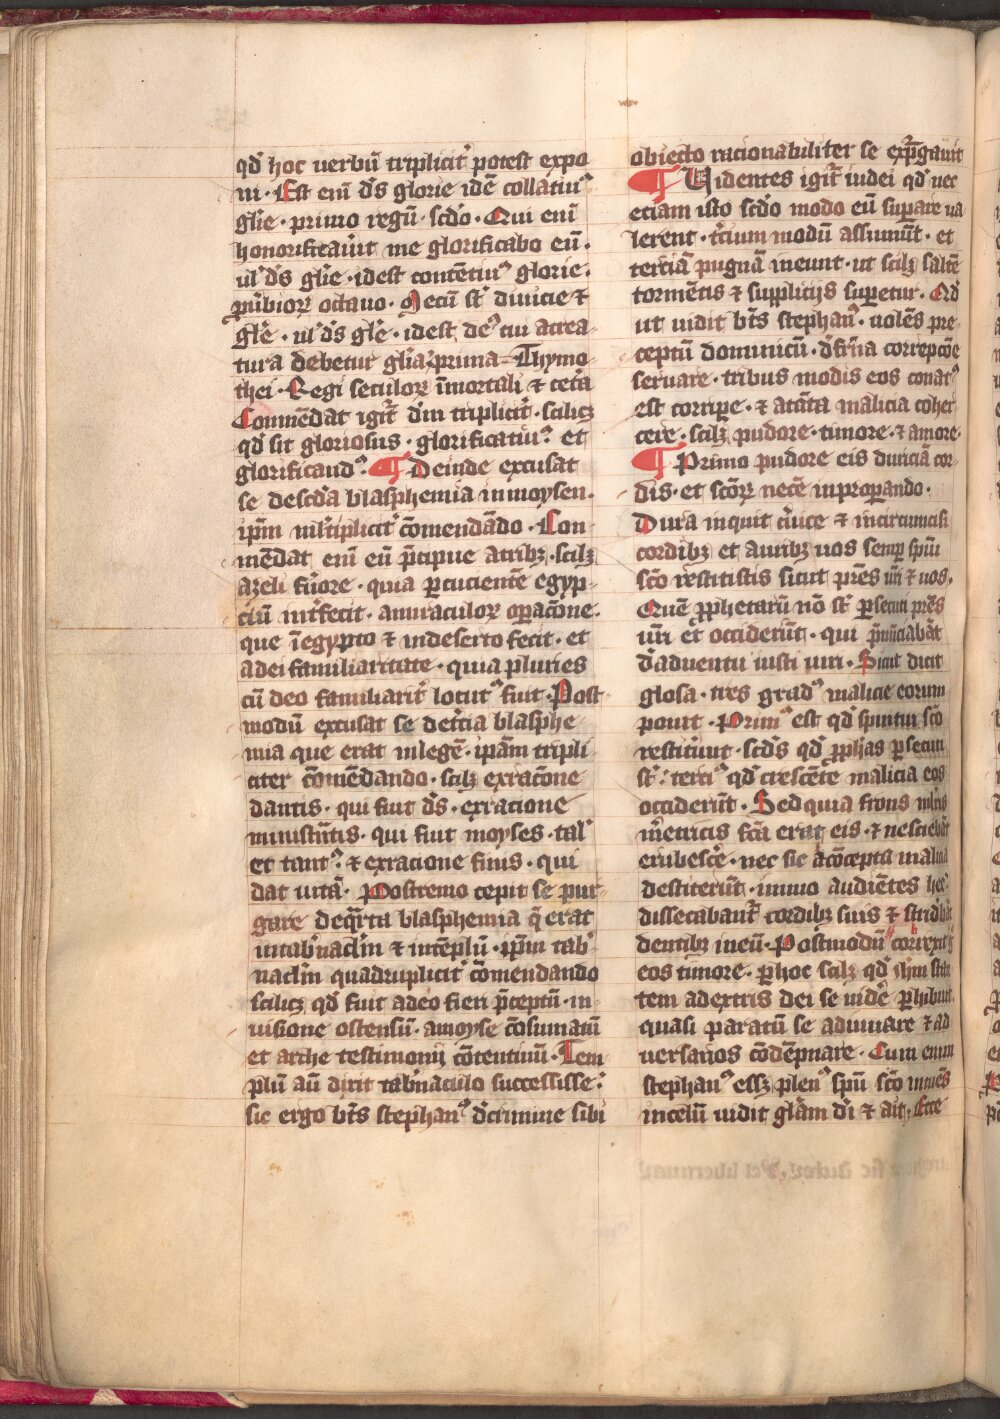 qd̄ hoc uerbū tripliciť potest expo
ni · Est enī dn̄s glorie idē collatiuꝰ
gl̄ie · primo regū · scdō · Qui enī
honorificauīt me glorificabo eū ·
ul̓ dn̄s gl̄ie · idest contētiuꝰ glorie ·
ꝓuībioꝝ octauo · Mecū sť diuicie ⁊
gl̄e · ul̓ dn̄s gl̄e · idest deꝰ cui acrea
tura debetur gl̄ia · prima Thymo
thei · Regi seculoꝝ īmortali ⁊ ceťa
Cōmēdat igiť dm̄ tripliciť · scilicꝫ
qd̓ sit gloriosus · glorificatiuꝰ et
glorificandꝰ · ¶ Deinde excusat
se descdā blasphemia inmoysen ·
ipm̄ mĺtipliciť cōmendādo · Com
mēdat enī eū p̄cipue atribꝫ · scilꝫ
azeli fūore · quia ꝑcucientē egyp
ciū inťfecit · amiraculoꝝ oꝑacōne ·
que īegypto ⁊ indeserto fecit · et
adei familiaritate · quia pluries
cū deo familiariť locutꝰ fuit · Post
modū excusat se deťcia blasphe
mia que erat inlegē · ipām tripli
citer cōmēdando · scilꝫ exracōne
dantis · qui fuit dn̄s · exracione
ministrātis · qui fuit moyses · tal̓
et tantꝰ · ⁊ exracione finis · qui
dat uitā · Postremo cepit se pur
gare deqrta blasphemia q̄ erat
intab̓nacl̄m ⁊ intēplū · ipm̄ tab̓
nacl̄m quadrupliciť cōmendando
scilicꝫ qd̓ fuit adeo fieri p̄ceptū · in
uisione ostensū · amoyse cōsumatū
et arche testimonij cōtentiuū · Tem
plū aū dixit tab̓naculo successisse ·
sic ergo bt̄s stephanꝰ dcrimine sibi
obiecto racionabiliter se exp̄gauit
¶ Uidentes igiť iudei qd̓ nec
etiam isto scdō modo eū suꝑare ua
lerent · ťcium modū assumūt · et
terciā pugnā ineunt · ut scilꝫ saltē
tormētis ⁊ supplicijs suꝑetur · Qd̓
ut uidit bt̄s stephanꝰ · uolēs pre
ceptū dominicū · dfr̄na correpcōe
seruare · tribus modis eos conatꝰ
est corriꝑe · ⁊ atāta malicia coher
cere · scilꝫ pudore · timore · ⁊ amore ·
¶ Primo pudore eis duriciā cor
dis · et scōꝝ necē inproꝑando ·
Dura inquit c̓uice ⁊ incircumcisi
cordibꝫ et auribꝫ uos semꝑ spūi
scō restitistis sicut pr̄es ur̄i ⁊ uos ·
Quē ꝓphetarū nō sť ꝑsecuti pr̄es
ur̄i et occiderūt · qui p̄nūciabāt
dāduentu iusti uiri · Sicut dicit
glosa · tres gradꝰ malicie eorum
ponit · Primꝰ est qd̓ spiritui scō
restiterūt · scdꝰs qd̓ ꝓph̄as ꝑsecuti
sť · terciꝰ qd̓ crescēte malicia eos
occiderūt · Sed quia frons mĺris
m̓etricis fc̄a erat eis · ⁊ nesciebāt
erubescē · nec sic acōcepta malicia
destiterūt · immo audiētes hec
dissecabanť cordibꝫ suis ⁊ stridebāt
dentibꝫ ineū · Postmodū correxit
eos timore · ꝑhoc scilꝫ qd̓ ih̄m stan
tem adextris dei se uidē ꝑhibuit ·
quasi paratū se adiuuare ⁊ ad
uersarios cōdēpnare · Cum enim
stephanꝰ essꝫ plenꝰ spū scō intuēs
incelū uidit gl̄am dī ⁊ ait · Ecce